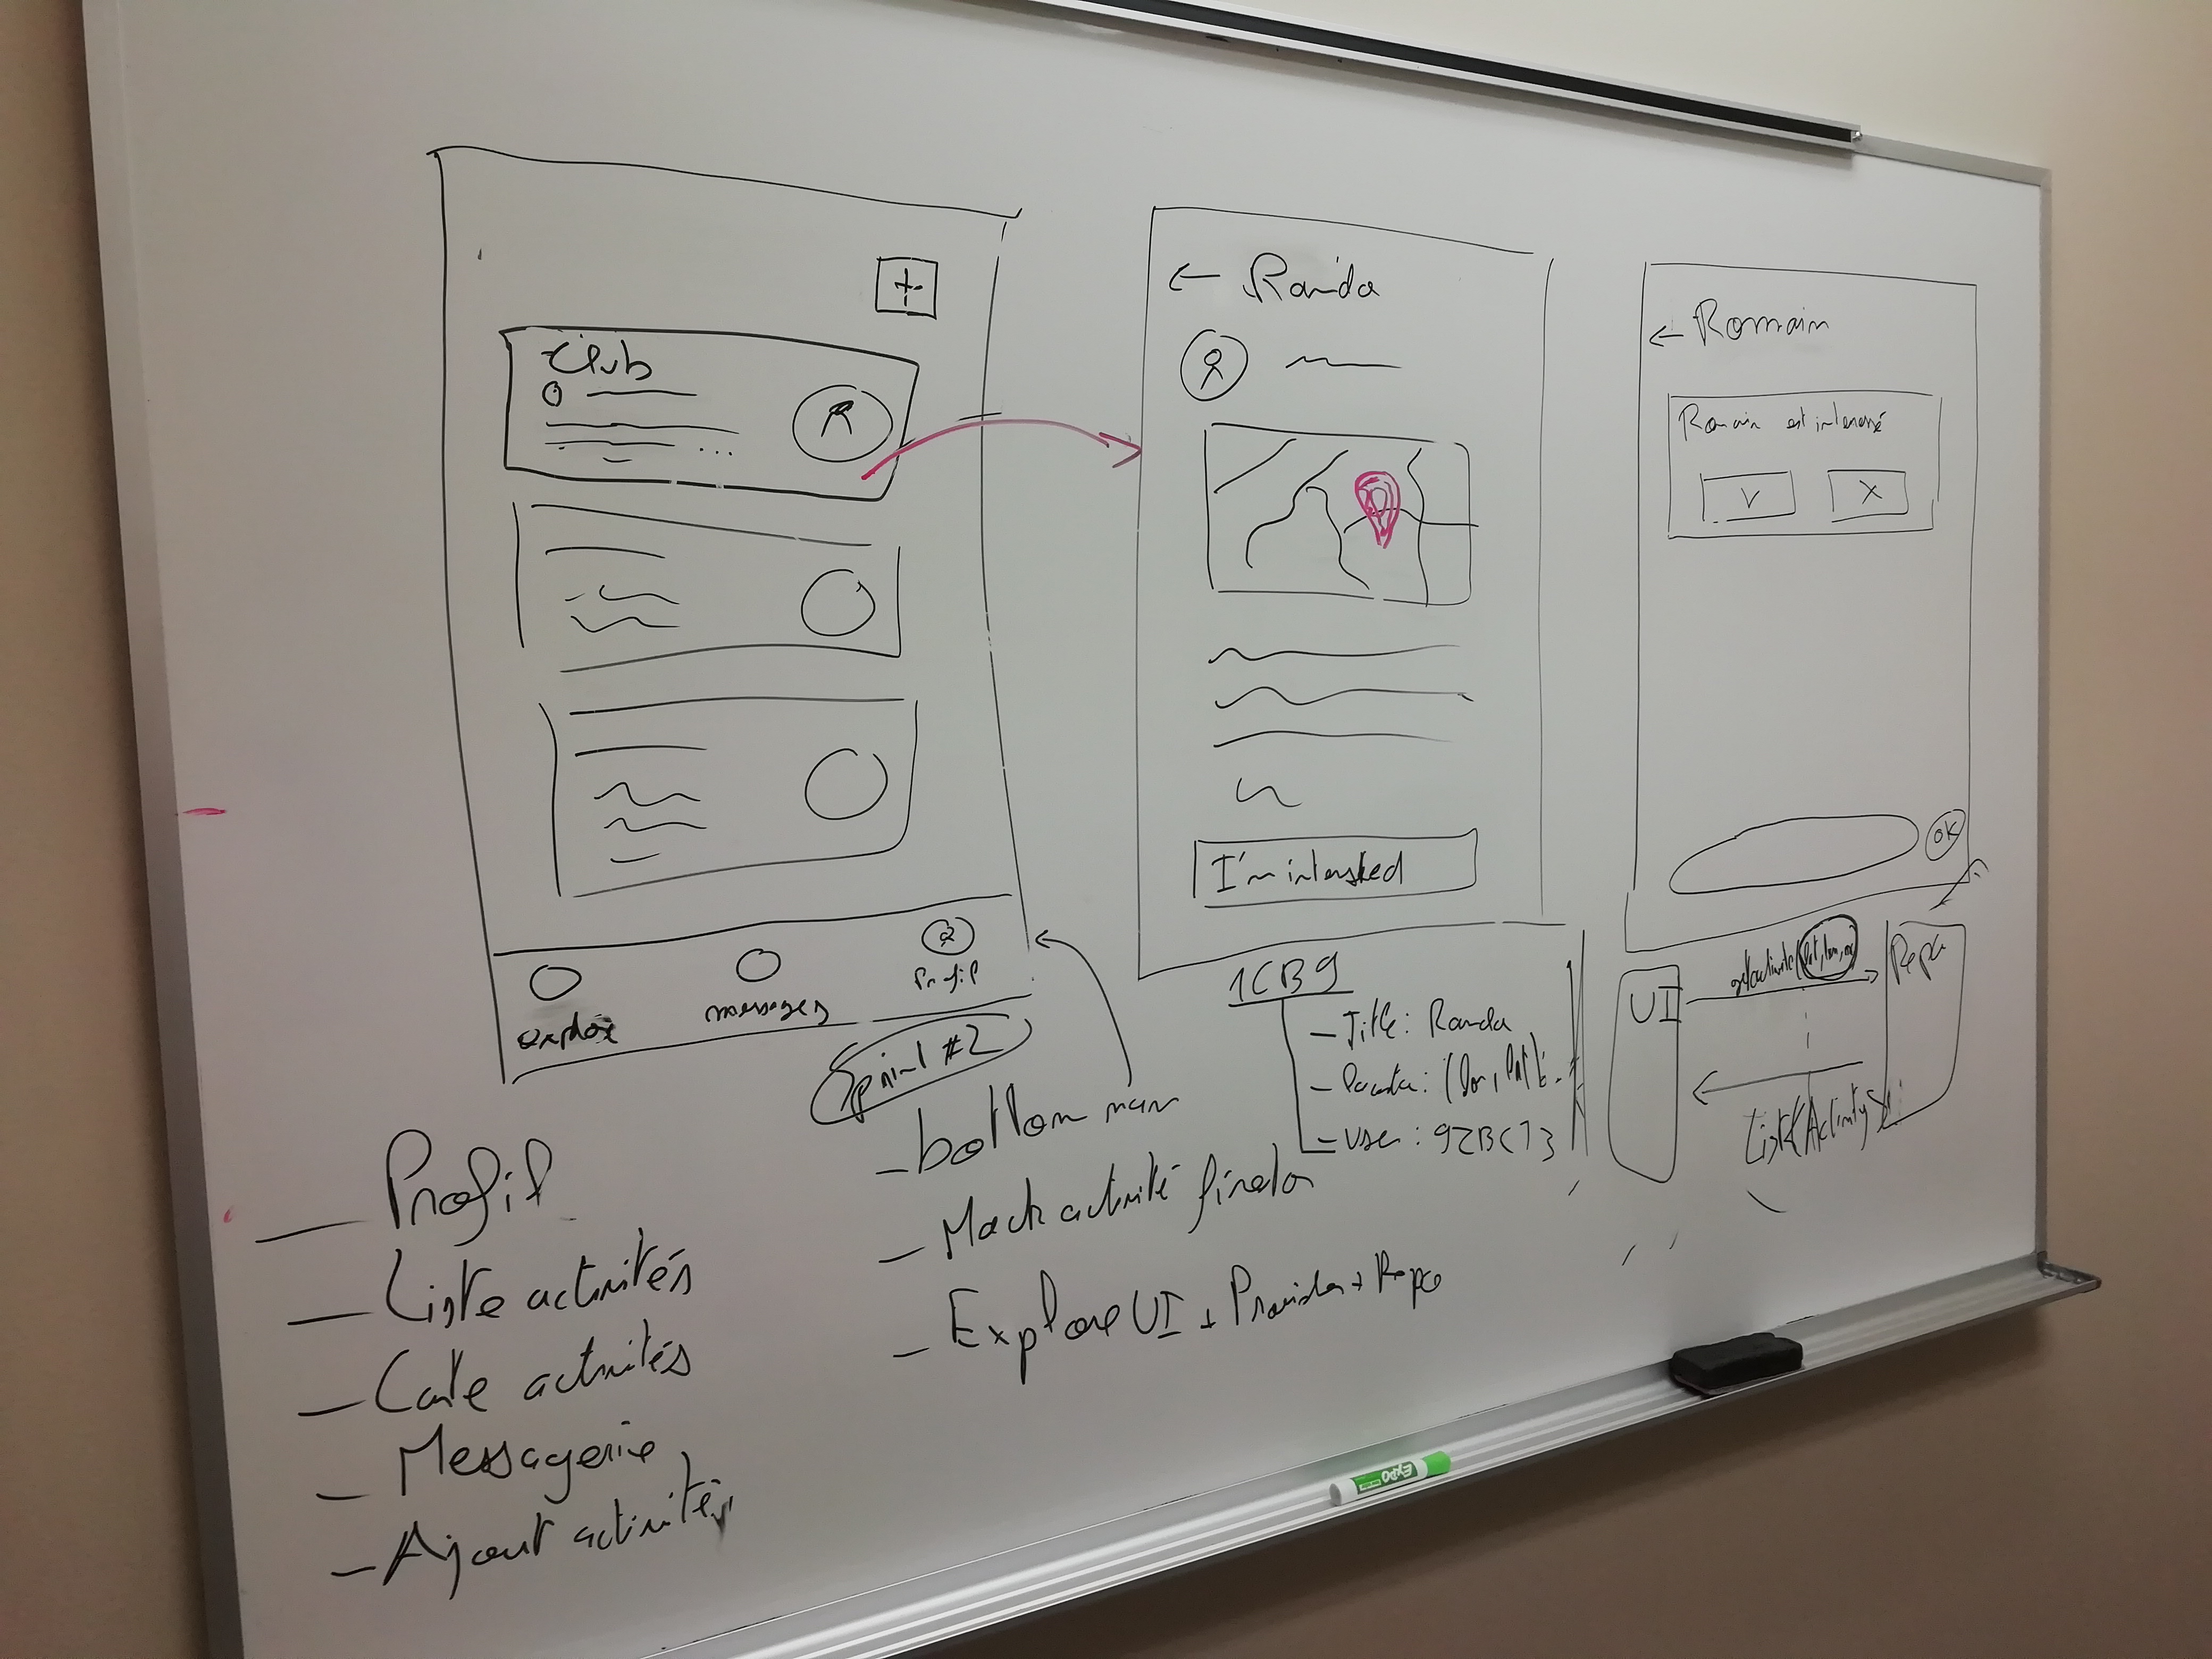 +
Club
explore
messages
Profil
← Rando
I'm interested
← Romain
Romain est interessé
V
X
OK
1CB9
- Title: Rando
- User: 92BC13
UI
Repo
List<Activity>
Sprint #2
- bottom nav
- Mock activité
- Explore UI + Provider + Repo
- Profil
- Liste activités
- Carte activités
- Messagerie
- Ajout activités
EXPO